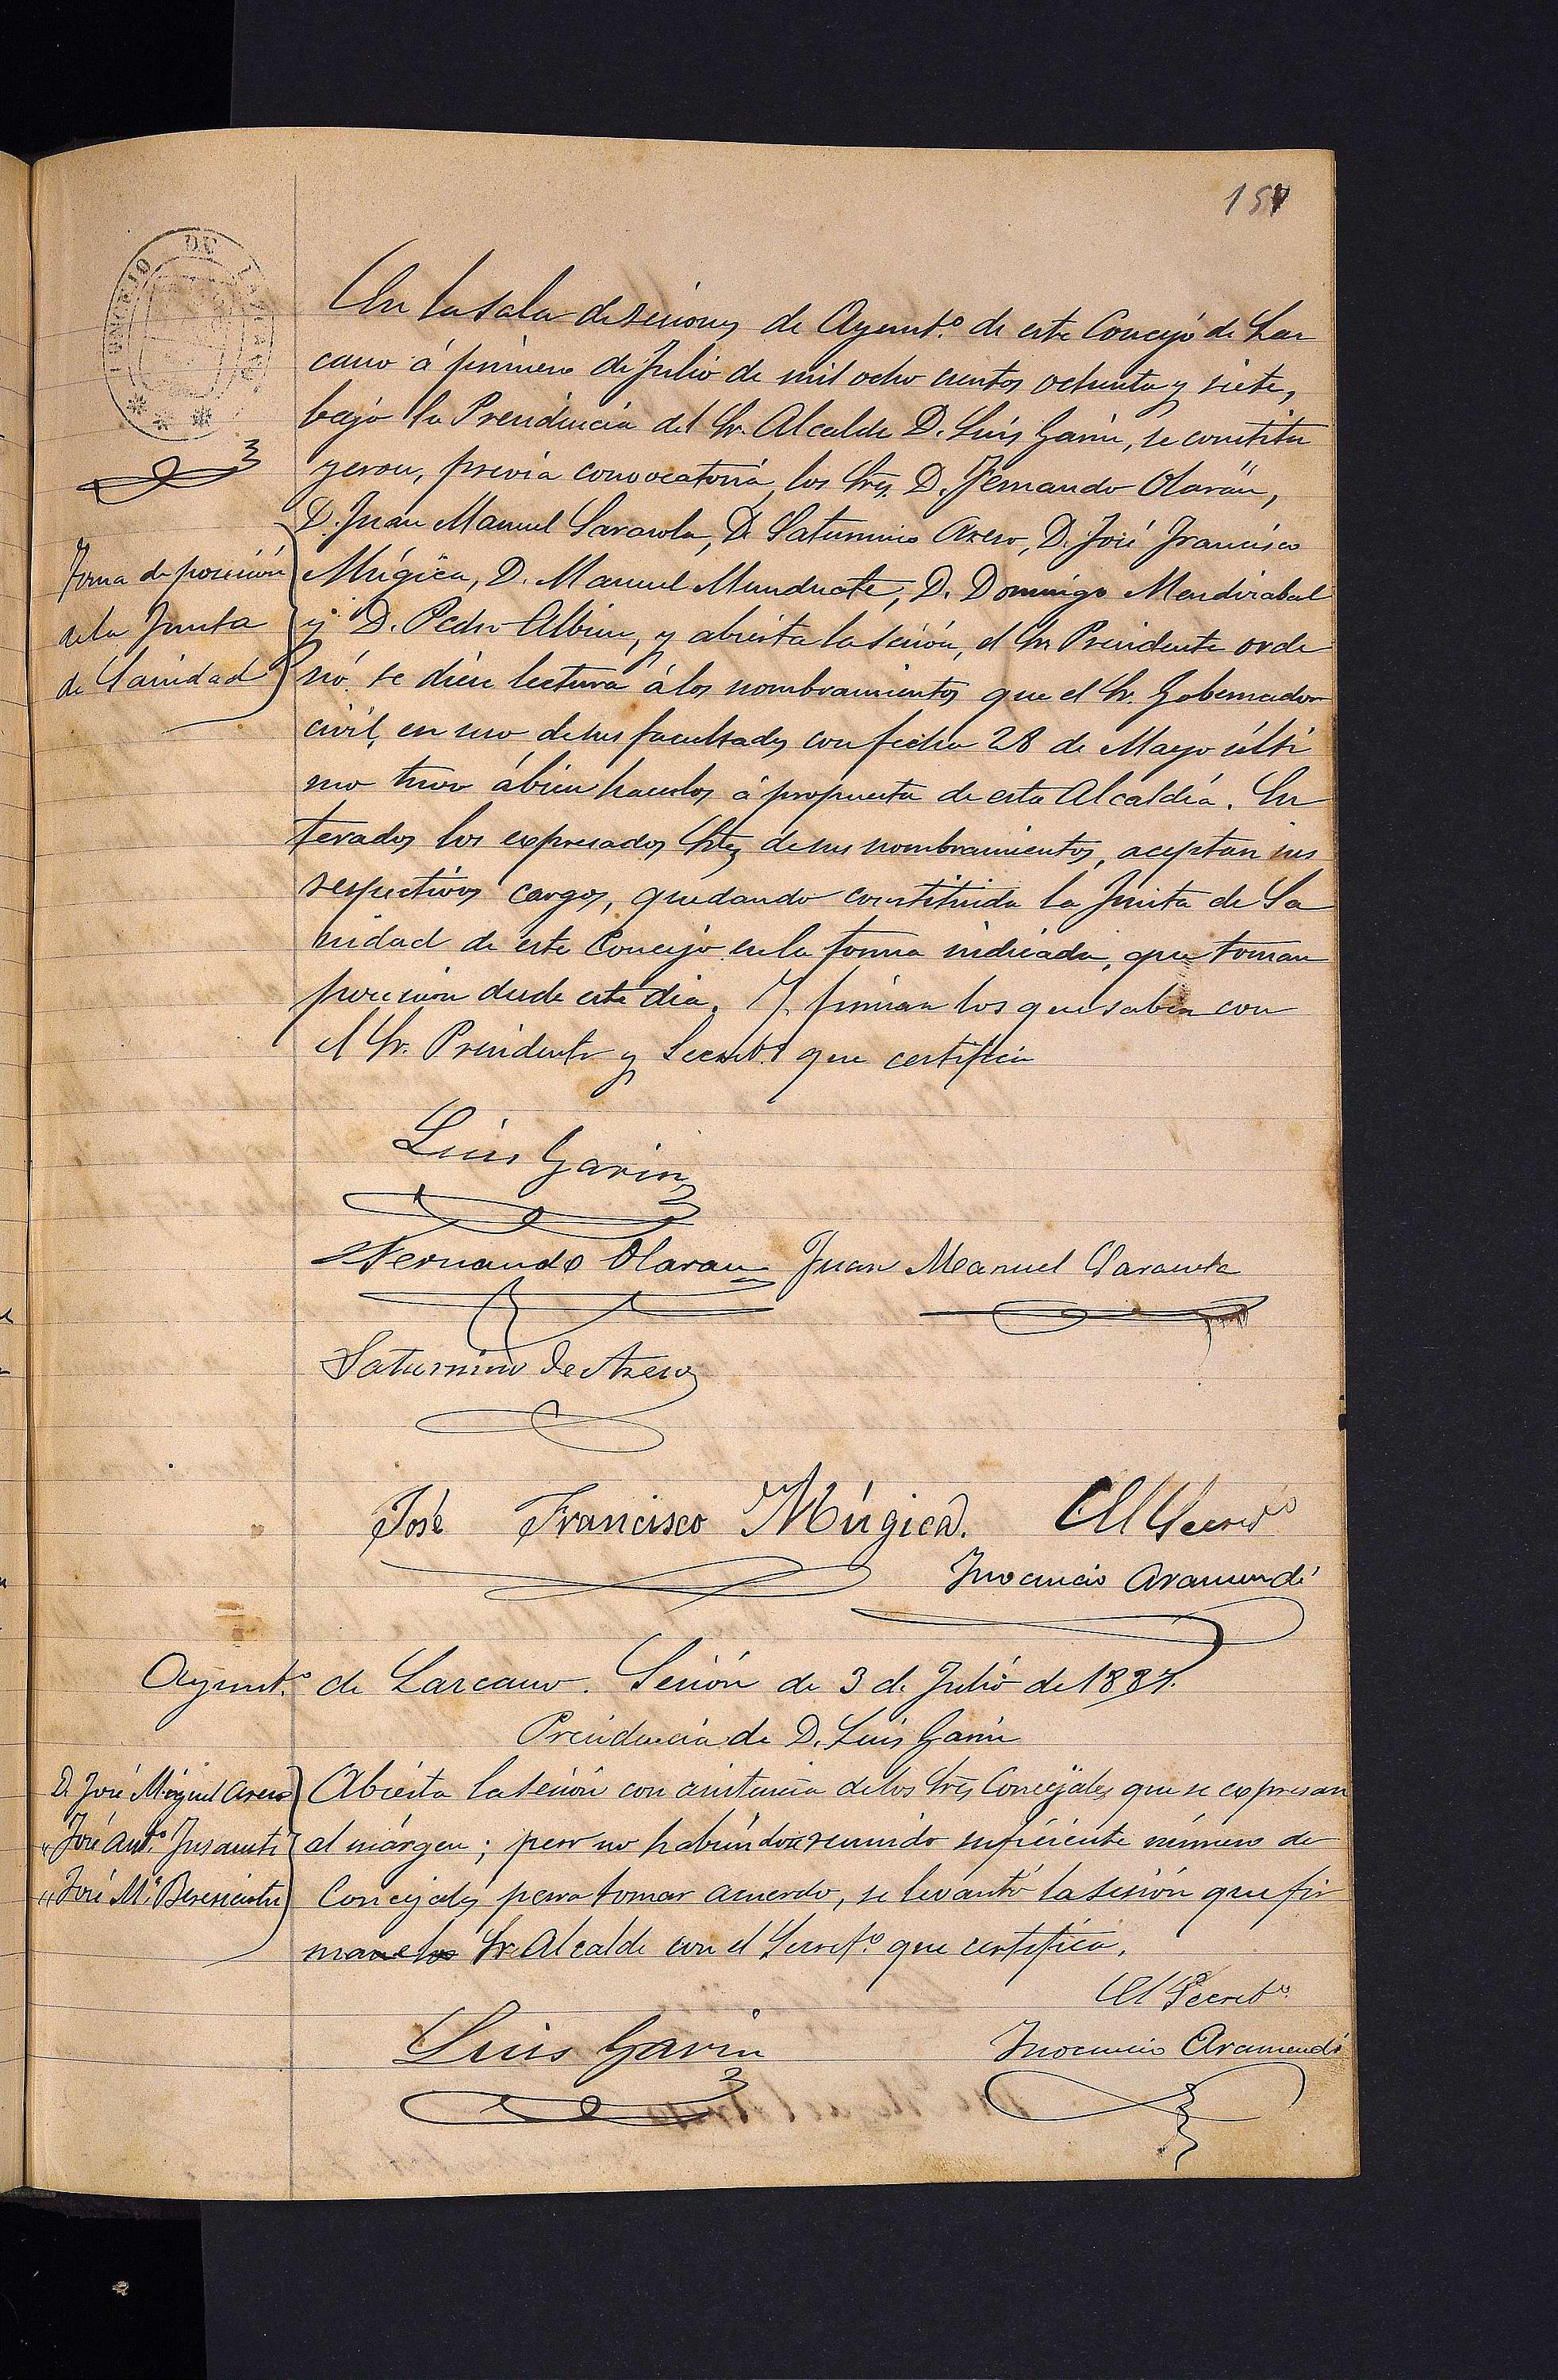 151
CONCEJO DE LAZCANO
En la sala de sesiones de Ayunt.º de este Concejo de Laz
cano á primero de Julio de mil ocho cientos ochenta y siete,
bajo la Presidencia del Sr. Alcalde D. Luis Garin, se constitu
yeron, previa convocatoria, los Sres. D. Fernando Olarán,
D. Juan Manuel Sarasola, D. Saturnino Azero, D. José Francisco
Toma de posesión
de la Junta
de Sanidad
Múgica, D. Manuel Munduate, D. Domingo Mendizabal
y D. Pedro Albisu, y abierta la sesión, el Sr. Presidente orde
nó se diese lectura á los nombramientos que el Sr. Gobernador
civil, en uso de sus facultades con fecha 28 de Mayo últi
mo tuvo á bien hacerlos á propuesta de esta Alcaldía. En
terados los expresados Sres de sus nombramientos, aceptan sus
respectivos cargos, quedando constituida la Junta de Sa
nidad de este Concejo en la forma indicada, que toman
posesion desde este dia. Y firman los que saben con
el Sr. Presidente y Secret.º que certifica
Luis Garin
Fernando Olaran Juan Manuel Sarasola
Saturnino de Azero
José Francisco Múgica. El Secret.º
Inocencio Aramendi
Ayunt.º de Lazcano. Sesión de 3 de Julio de 1887.
Presidencia de D. Luis Garin
D. José Miguel Azero
" José Ant.º Insausti
" José M.ª
Abierta la sesión con asistencia de los Sres Concejales que se expresan
al márgen; pero no habiéndose reunido suficiente número de
Concejales para tomar acuerdo, se levantó la sesión que fir
Sr. Alcalde con el Secret.º que certifica.
El Secret.º
Luis Garin Inocencio Aramendi